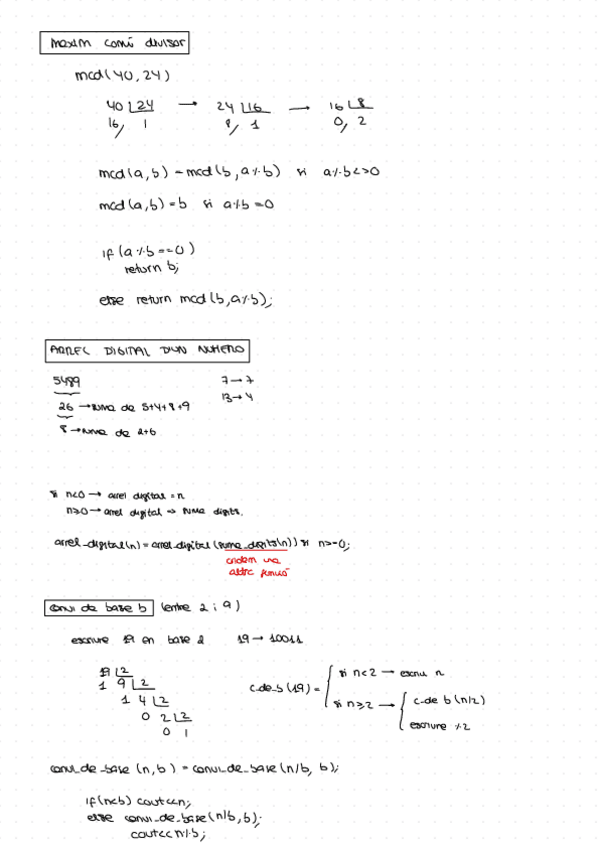 maxim comú divisor
mcd(40,24)
40 24 → 24 16 → 16 8
16 1 8 1 0 2
mcd(a,b) = mcd(b,a%b) si a%b<>0
mcd(a,b) = b si a%b=0
if(a%b==0)
return b;
else return mcd(b,a%b);
ARREL DIGITAL D'UN NÚMERO
5489 7→7
26 → suma de 5+4+8+9 13→4
8 → suma de 2+6
si n<0 → arrel digital = n
n≥0 → arrel digital => suma digits.
arrel_digital(n) = arrel_digital(suma_digits(n)) si n>=0;
cridem una
altre funció
canvi de base b (entre 2 i 9)
escriure 19 en base 2 19→10011
19 2
1 9 2
1 4 2
0 2 2
0 1
c-de-b(19) = si n<2 → escriu n
si n≥2 → c-de b(n/2)
escriure %2
canvi_de_base (n,b) = canvi_de_base (n/b, b);
if(n<b) cout<<n;
else canvi_de_base(n/b,b);
cout<<n%b;